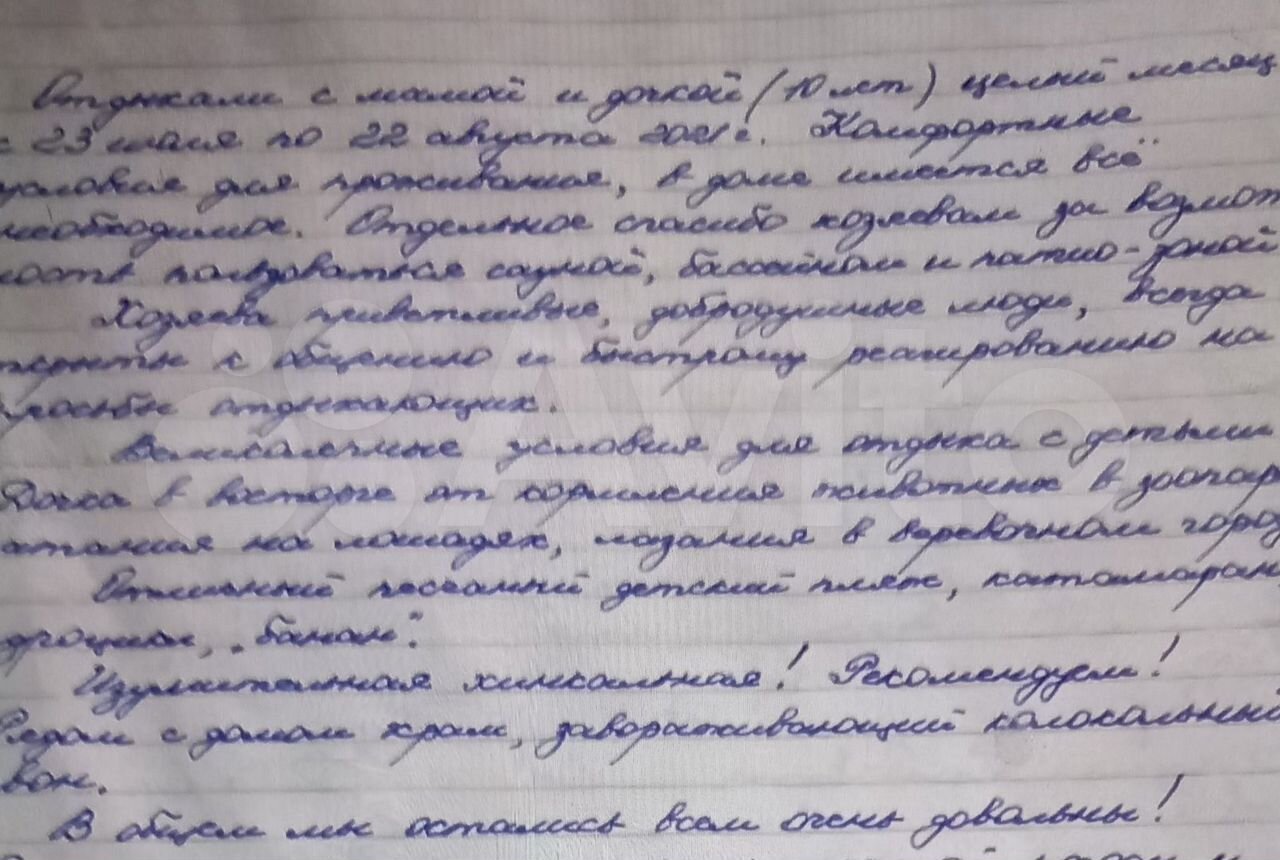 Отдыхали с мамой и дочкой (10 лет) целый месяц
с 23 июля по 22 августа 2021 г. Комфортные
условия для проживания, в доме имеется всё
необходимое. Отдельное спасибо хозяевам за возмож
ность пользоваться сауной, бассейном и патио-зоной
Хозяева приветливые, добродушные люди, всегда
открыты к общению и быстрому реагированию на
просьбы отдыхающих.
Великолепные условия для отдыха с детьми
Дочка в восторге от кормления животных в зоопар
катания на лошадях, лазания в верёвочном город
Отличный песчаный детский пляж, катамаран
дроциклы, "банан".
Изумительная хинкальная! Рекомендуем!
Рядом с домом храм, завораживающий колокольный
звон.
В общем мы остались всем очень довольны!
Avito